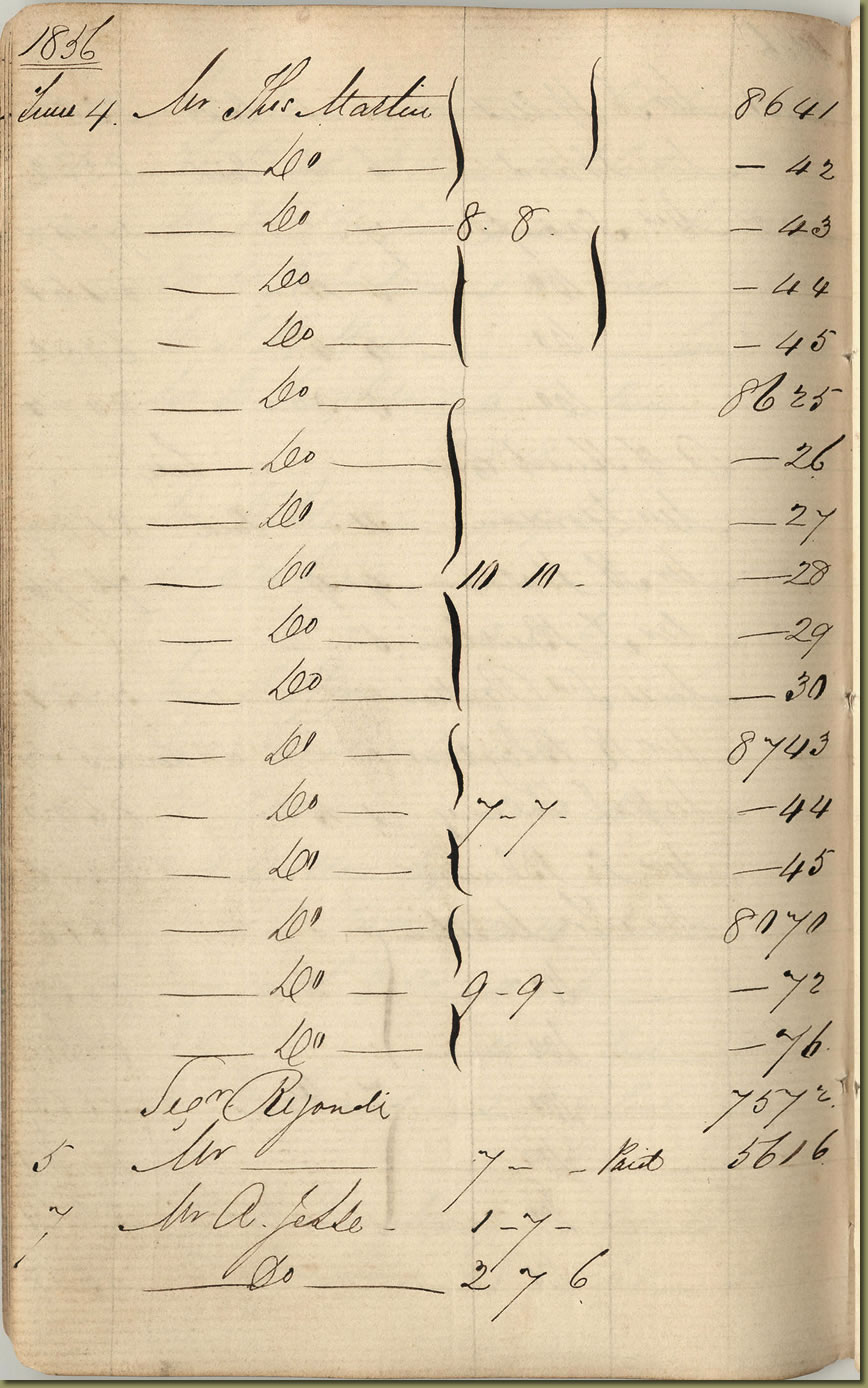 1836
June 4. Mr Thos Martin 8641
Do — 42
Do 8. 8. — 43
Do — 44
Do — 45
Do 8625
Do — 26
Do — 27
Do 10 10 - — 28
Do — 29
Do — 30
Do 8743
Do 7 - 7 - — 44
Do — 45
Do 8070
Do 9 - 9 - — 72
Do — 76.
Sigr. 7572.
5 Mr ——— 7 - - Paid 5616
7 Mr A. Jesse - 1 - 7 -
Do 2 7 6